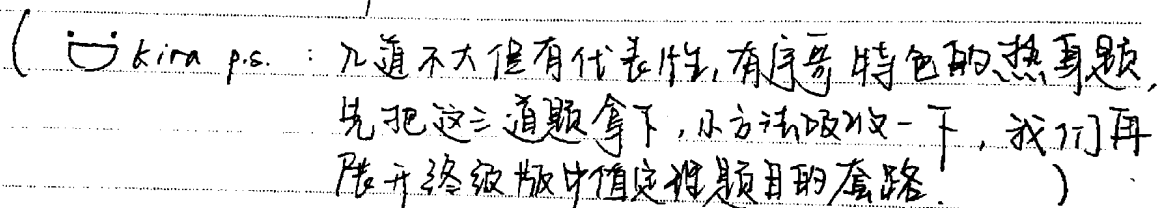 ( kira p.s. : 几道不大但有代表性,有宇哥特色的热身题,
先把这三道题拿下,小方法吸收一下,我们再
展开终级版中值定理题目的套路. )